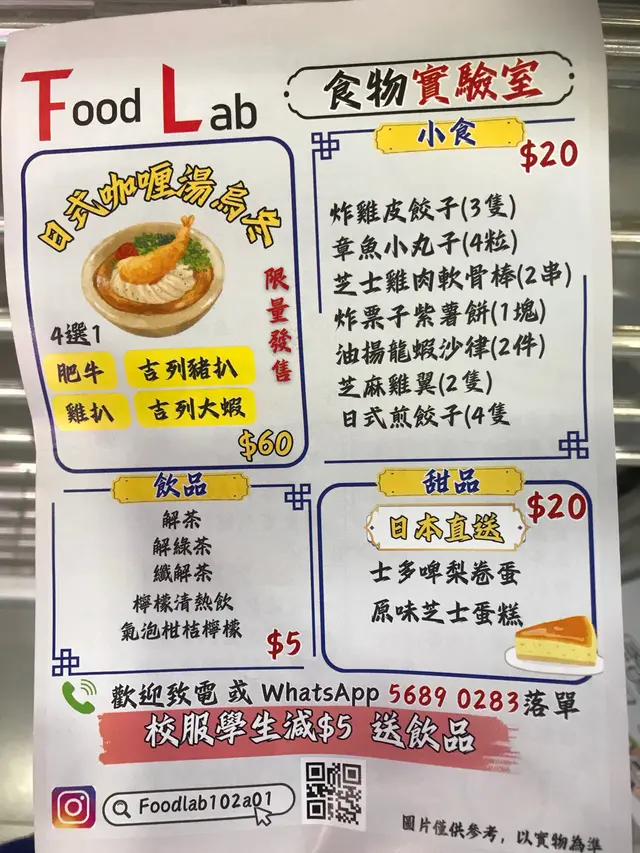 Food Lab
食物實驗室
日式咖喱湯烏冬
限量發售
4選1
肥牛
吉列豬扒
雞扒
吉列大蝦
$60
小食
$20
炸雞皮餃子(3隻)
章魚小丸子(4粒)
芝士雞肉軟骨棒(2串)
炸栗子紫薯餅(1塊)
油揚龍蝦沙律(2件)
芝麻雞翼(2隻)
日式煎餃子(4隻
飲品
解茶
解綠茶
纖解茶
檸檬清熱飲
氣泡柑桔檸檬
$5
甜品
$20
日本直送
士多啤梨卷蛋
原味芝士蛋糕
歡迎致電 或 WhatsApp 5689 0283落單
校服學生減$5 送飲品
Foodlab102a01
圖片僅供參考，以實物為準